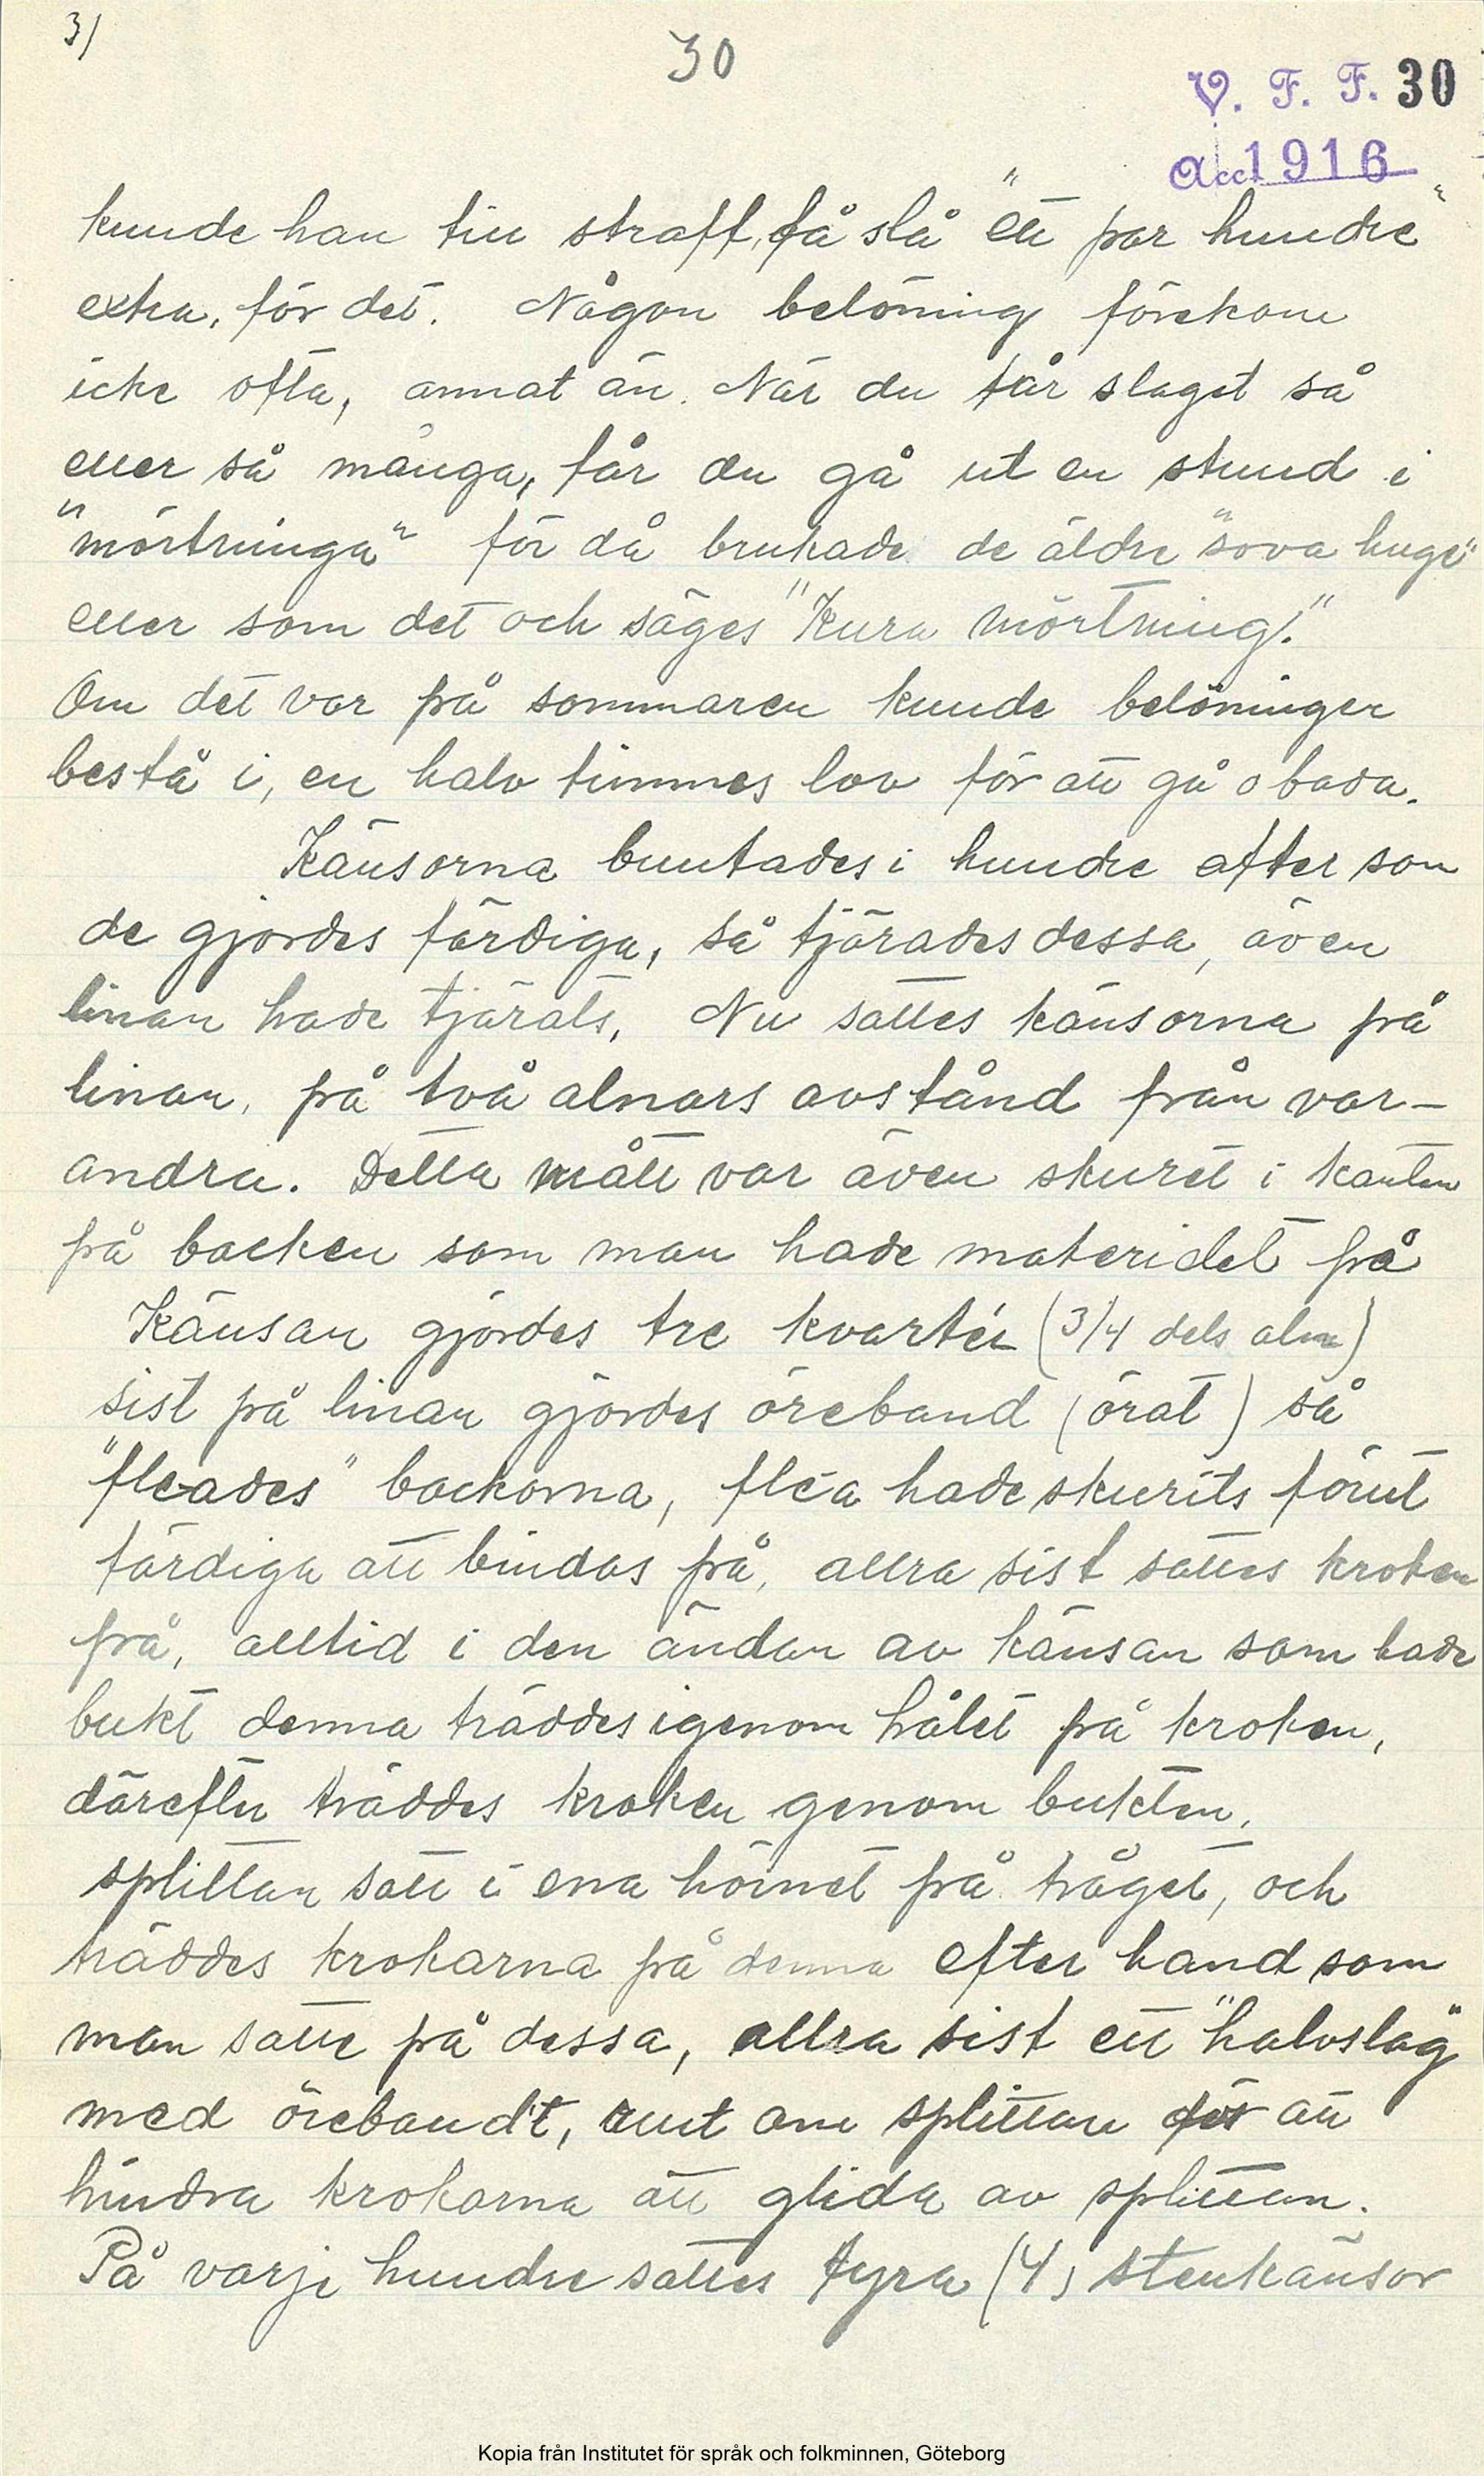 3/
30
V. F. F. 30
Acc 1916
kunde han till straff, få slå "ett par hundre"
extra, för det. Någon belöning förekom
icke ofta, annat än. När du får slaget så
eller så många, får du gå ut en stund i
"mörtninga" för då brukade de äldre "sova huge"
eller som det och säges "Kura mörtning".
Om det var på sommaren kunde belöninger
bestå i, en halv timmes lov för att gå o bada.
Känsorna buntades i hundre after som
de gjordes färdiga, så tjärades dessa, även
linan hade tjärats, Nu sattes känsorna på
linan, på två alnars avstånd från var-
andra. Detta mått var även skuret i kanten
på backen som man hade materialet på
Känsan gjordes tre kvartér (3/4 dels aln)
sist på linan gjordes öreband (örat) så
"fleades" backorna, fléa hade skurits förut
färdiga att bindas på, allra sist sattes kroken
på, alltid i den ändan av känsan som hade
bukt denna träddes igenom hålet på kroken,
därefter träddes kroken genom bukten,
splittan satt i ena hörnet på tråget, och
träddes krokarna på denna efter hand som
man satte på dessa, allra sist ett "halvslag"
med örebandt, runt om splittan för att
hindra krokarna att glida av splittan.
På varje hundre sattes fyra (4) stenkänsor
Kopia från Institutet för språk och folkminnen, Göteborg